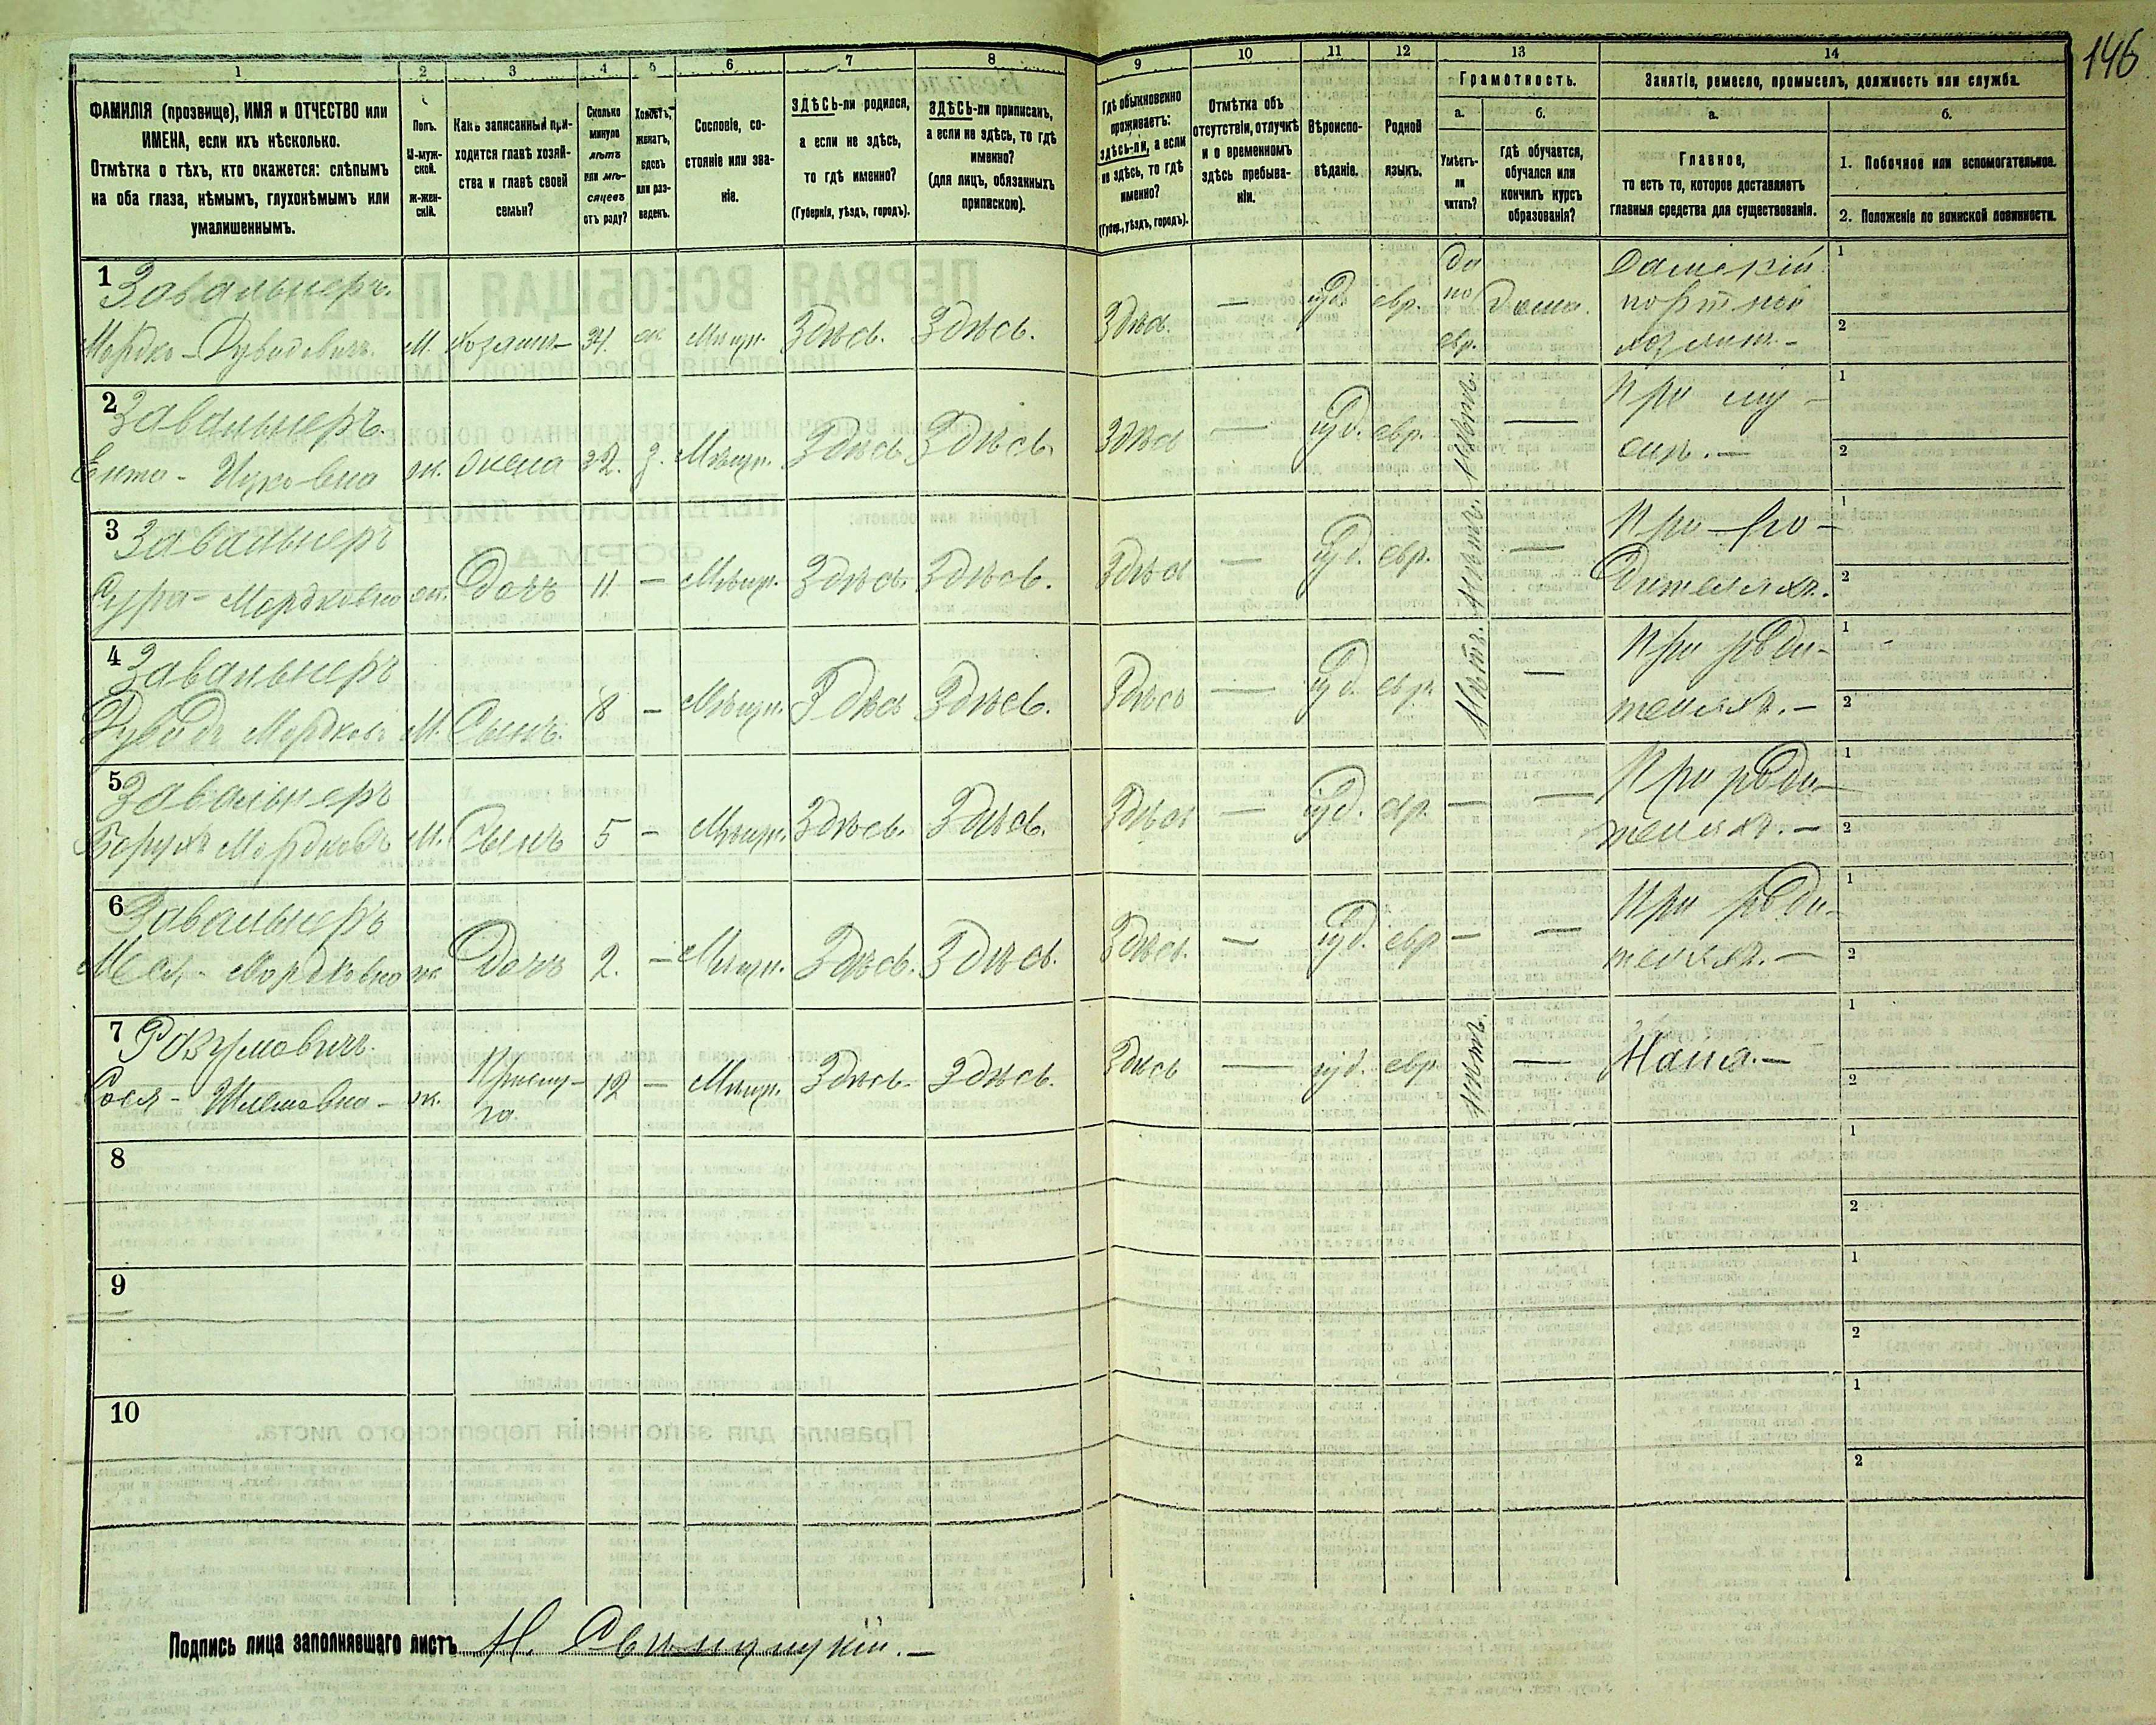 146
1
2
3
4
5
6
7
8
9
10
11
12
13
14
ФАМИЛІЯ (прозвище), ИМЯ и ОТЧЕСТВО или
ИМЕНА, если ихъ нѣсколько.
Отмѣтка о тѣхъ, кто окажется: слѣпымъ
на оба глаза, нѣмымъ, глухонѣмымъ или
умалишеннымъ.
Полъ.
М-муж-
ской.
ж-жен-
скій.
Какъ записанный при-
ходится главѣ хозяй-
ства и главѣ своей
семьи?
Сколько
минуло
лѣтъ
или мѣ-
сяцевъ
отъ роду?
Холостъ,
женатъ,
вдовъ
или раз-
веденъ.
Сословіе, со-
стояніе или зва-
ніе.
ЗДѢСЬ-ли родился,
а если не здѣсь,
то гдѣ именно?
(Губернія, уѣздъ, городъ).
ЗДѢСЬ-ли приписанъ,
а если не здѣсь, то гдѣ
именно?
(для лицъ, обязанныхъ
припискою).
Гдѣ обыкновенно
проживаетъ:
здѣсь-ли, а если
не здѣсь, то гдѣ
именно?
(Губер., уѣздъ, городъ).
Отмѣтка объ
отсутствіи, отлучкѣ
и о временномъ
здѣсь пребыва-
ніи.
Вѣроиспо-
вѣданіе.
Родной
языкъ.
Грамотность.
а.
Умѣетъ-
ли
читать?
б.
гдѣ обучается,
обучался или
кончилъ курсъ
образованія?
Занятіе, ремесло, промыселъ, должность или служба.
а.
Главное,
то есть то, которое доставляетъ
главныя средства для существованія.
б.
1. Побочное или вспомогательное.
2. Положеніе по воинской повинности.
1 Завальнеръ
Мордко-Дувидовичъ М. хозяинъ 34 ж. Мѣщ. Здѣсь. Здѣсь. Здѣсь. — іуд. евр. да по евр. Дома. Дамскій портной хозяинъ —
2 Завальнеръ
Ицковна ж. жена 32. з. Мѣщан. Здѣсь Здѣсь. Здѣсь — іуд. евр. Нѣтъ. — При мужѣ. —
3 Завальнеръ
Сура-Мордковна ж. дочь 11 — Мѣщан. Здѣсь. Здѣсь. Здѣсь — іуд. евр. Нѣтъ. — При родителяхъ.
4 Завальнеръ
Дувидъ Мордковъ М. Сынъ. 8 — Мѣщан. Здѣсь Здѣсь. Здѣсь — іуд. евр. Нѣтъ. — При родителяхъ. —
5 Завальнеръ
Борухъ Мордковъ М. Сынъ 5 — Мѣщан. Здѣсь. Здѣсь. Здѣсь — іуд. евр. — — При родителяхъ. —
6 Завальнеръ
Мордковна ж. дочь 2. — Мѣщан. Здѣсь. Здѣсь. Здѣсь. — іуд. евр. — — При родителяхъ. —
7 Разумовичъ
Сося-Шлемовна- ж. Прислуга. 12 — Мѣщан. Здѣсь. Здѣсь. Здѣсь — іуд. евр. Нѣтъ. — Няня. —
8
9
10
Подпись лица заполнявшаго листъ